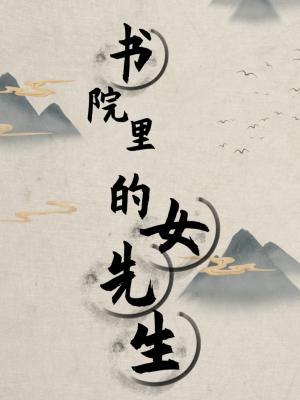 书院里的女先生